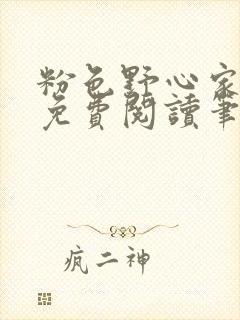 粉色野心家
免費閱讀筆
疯二神